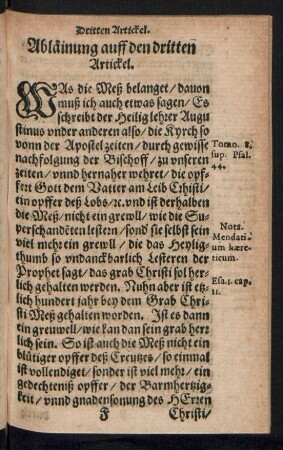 Dritten Artickel.
Abläinung auff den dritten
Artickel.
WAs die Meß belanget / dauon
muß ich auch etwas sagen / Es
schreibt der Heilig lehrer Augu
stinus vnder anderen also / die Kyrch so
vonn der Apostel zeiten / durch gewisse
nachfolgung der Bischoff / zu vnseren
zeiten / vnnd hernaher wehret / die opf-
fert Gott dem Vatter am Leib Christi /
ein opffer deß Lobs / ꝛc. vnd ist derhalben
die Meß / nicht ein grewll / wie die Su-
perschandēten lestern / sond sie selbst sein
viel mehr ein grewll / die das Heylig-
thumb so vndanckbarlich Lesteren der
Prophet sagt / das grab Christi sol her-
lich gehalten werden. Nuhn aber ist etz-
lich hundert jahr bey dem Grab Chri-
sti Meß gehalten worden. Ist es dann
ein greuwell / wie kan dan sein grab herr
lich sein. So ist auch die Meß nicht ein
blütiger opffer deß Creutzes / so einmal
ist vollendiget / sonder ist viel mehr / ein
gedechteniß opffer / der Barmhertzig-
keit / vnnd gnadensonung des HErren
F Christi /
Tomo. 8.
sup. Psal.
44.
Nota.
Mendati-
um hære-
ticum.
Esa. 1. cap.
11.